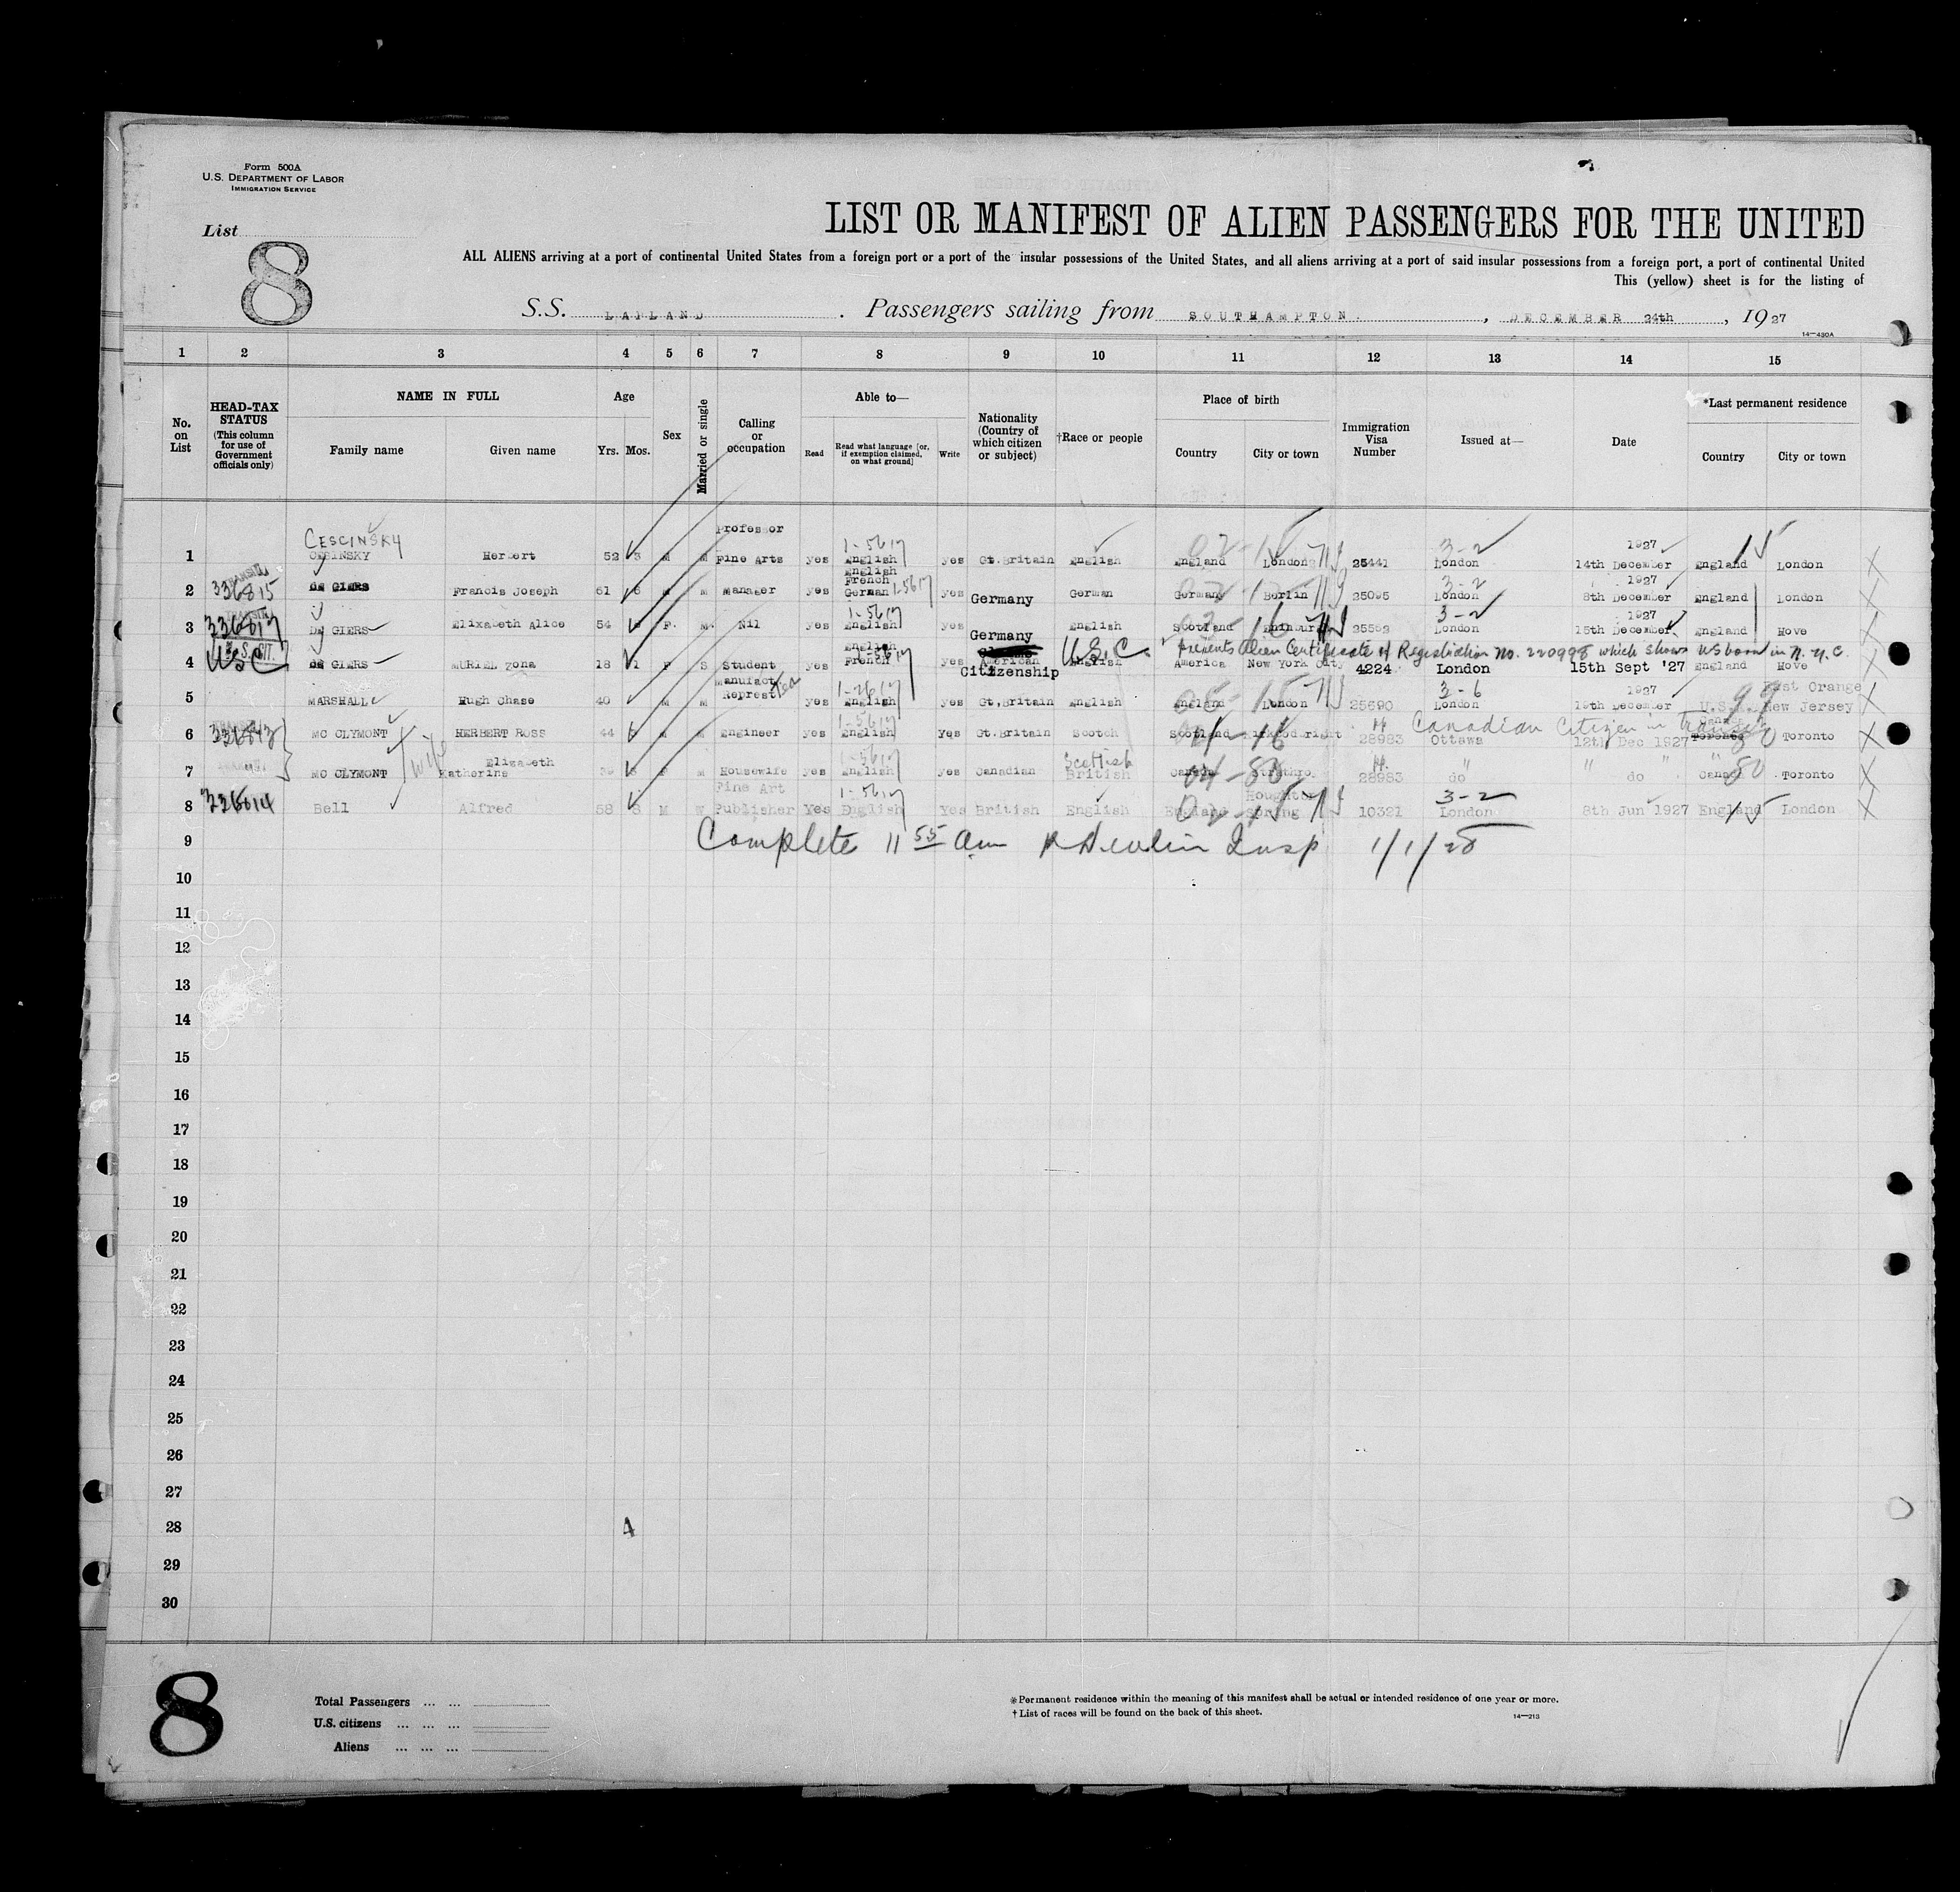 Form 500A
U.S. DEPARTMENT OF LABOR
IMMIGRATION SERVICE
List
8
LIST OR MANIFEST OF ALIEN PASSENGERS FOR THE UNITED
ALL ALIENS arriving at a port of continental United States from a foreign port or a port of the insular possessions of the United States, and all aliens arriving at a port of said insular possessions from a foreign port, a port of continental United
This (yellow) sheet is for the listing of
S.S. LAPLAND. Passengers sailing from SOUTHAMPTON. , DECEMBER 24th , 1927
14—430A
1 2 3 4 5 6 7 8 9 10 11 12 13 14 15
No. on List
HEAD-TAX STATUS (This column for use of Government officials only)
NAME IN FULL
Family name Given name
Age
Yrs. Mos.
Sex
Married or single
Calling or occupation
Able to—
Read Read what language [or, if exemption claimed, on what ground] Write
Nationality (Country of which citizen or subject)
†Race or people
Place of birth
Country City or town
Immigration Visa Number
Issued at—
Date
*Last permanent residence
Country City or town
CESCINSKY Professor 1927
1 CESINSKY Herbert 52 3 M M Fine Arts yes English yes Gt.Britain English England London 25441 London 14th December England London
3-2
English French 1927
2 336815 DE GIERS Francis Joseph 61 6 M M Manager yes German yes Germany German Germany Berlin 25095 London 8th December England London
3-2
1927
3 DE GIERS Elizabeth Alice 54 F. M. Nil yes English yes Germany English Scotland 25563 London 15th December England Hove
3-2
U.S.C. Presents Alien Certificate of Registration No. 220998 which shows US born in N.Y.C.
4 USC DE GIERS MURIEL zona 18 1 F S Student yes English French yes American Citizenship English America New York City 4224 London 15th Sept '27 England Hove
Manufact 1927 East Orange
5 MARSHALL Hugh Chase 40 M M Represt yes English yes Gt.Britain English England London 25690 London 19th December U.S.A. New Jersey
3-6
Canadian Citizen in transit
6 MC CLYMONT HERBERT ROSS 44 M M Engineer yes English yes Gt.Britain Scotch Scotland Kirkcudbright 28983 Ottawa 12th Dec 1927 Canada Toronto
wife
Elizabeth Scottish
7 MC CLYMONT Katherine F M Housewife yes English yes Canadian British Canada 28983 do do Canada Toronto
Fine Art Houghton
8 Bell Alfred 58 8 M W Publisher Yes English Yes British English England Spring 10321 London 8th Jun 1927 England London
3-2
9 Complete 11 55 am Insp 1/1/28
10
11
12
13
14
15
16
17
18
19
20
21
22
23
24
25
26
27
28 4
29
30
8
Total Passengers ... ...
U.S. citizens ... ... ...
Aliens ... ... ...
*Permanent residence within the meaning of this manifest shall be actual or intended residence of one year or more.
† List of races will be found on the back of this sheet.
14—213